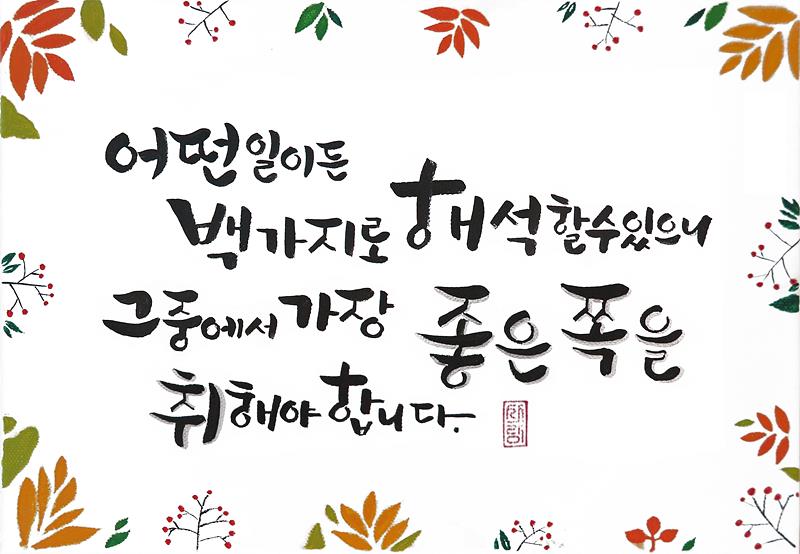 어떤 일이든
백가지로 해석 할 수 있으니
그 중에서 가장 좋은 쪽을
취해야 합니다.